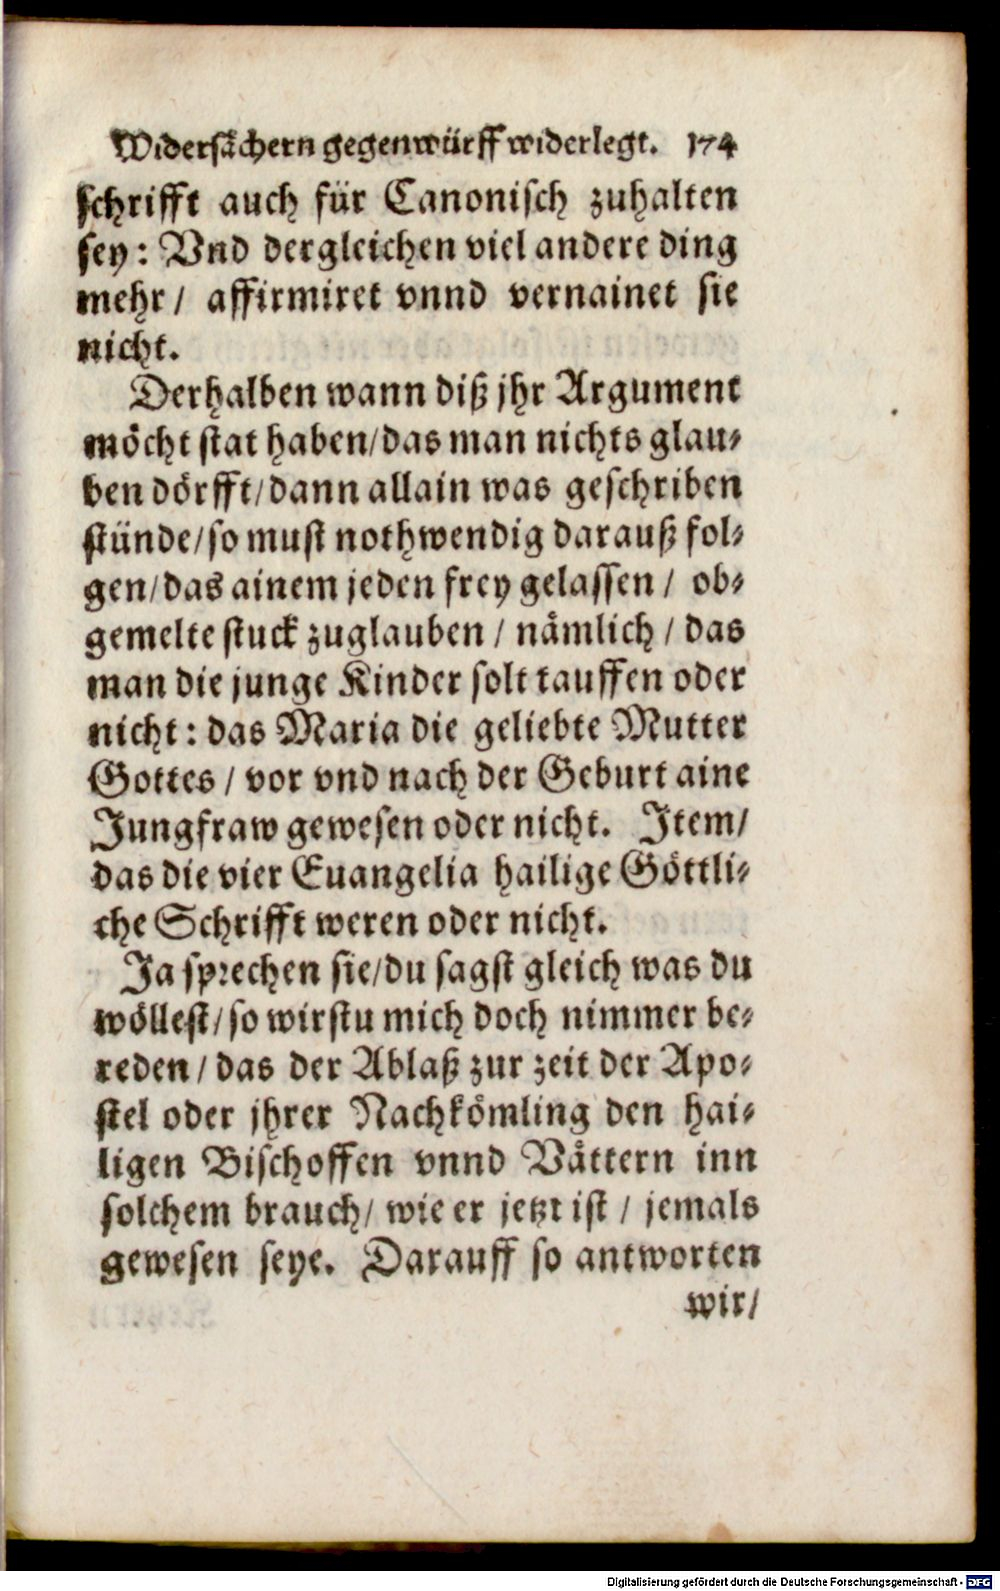 Widersächern gegenwürff widerlegt. 174
schrifft auch für Canonisch zuhalten
sey: Vnd dergleichen viel andere ding
mehr / affirmiret vnnd vernainet sie
nicht.
Derhalben wann diß jhr Argument
möcht stat haben/das man nichts glau⸗
ben dörfft/dann allain was geschriben
stünde/so must nothwendig darauß fol⸗
gen/das ainem jeden frey gelassen / ob⸗
gemelte stuck zuglauben / nämlich / das
man die junge Kinder solt tauffen oder
nicht: das Maria die geliebte Mutter
Gottes / vor vnd nach der Geburt aine
Jungfraw gewesen oder nicht. Item/
das die vier Euangelia hailige Göttli⸗
che Schrifft weren oder nicht.
Ja sprechen sie/du sagst gleich was du
wöllest/so wirstu mich doch nimmer be⸗
reden / das der Ablaß zur zeit der Apo⸗
stel oder jhrer Nachkömling den hai⸗
ligen Bischoffen vnnd Vättern inn
solchem brauch/ wie er jetzt ist / jemals
gewesen seye. Darauff so antworten
wir/
Digitalisierung gefördert durch die Deutsche Forschungsgemeinschaft - DFG